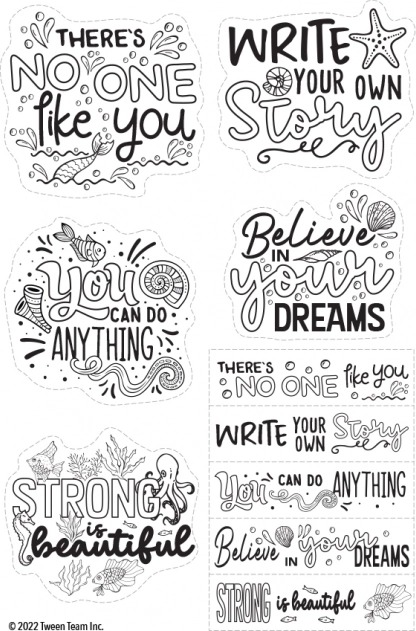 THERE'S
NO ONE
like YOU
WRITE
YOUR OWN
Story
You
CAN DO
ANYTHING
Believe
IN
your
DREAMS
STRONG
is
beautiful
THERE'S
NO ONE
like YOU
WRITE YOUR OWN Story
You CAN DO ANYTHING
Believe IN your DREAMS
STRONG is beautiful
© 2022 Tween Team Inc.